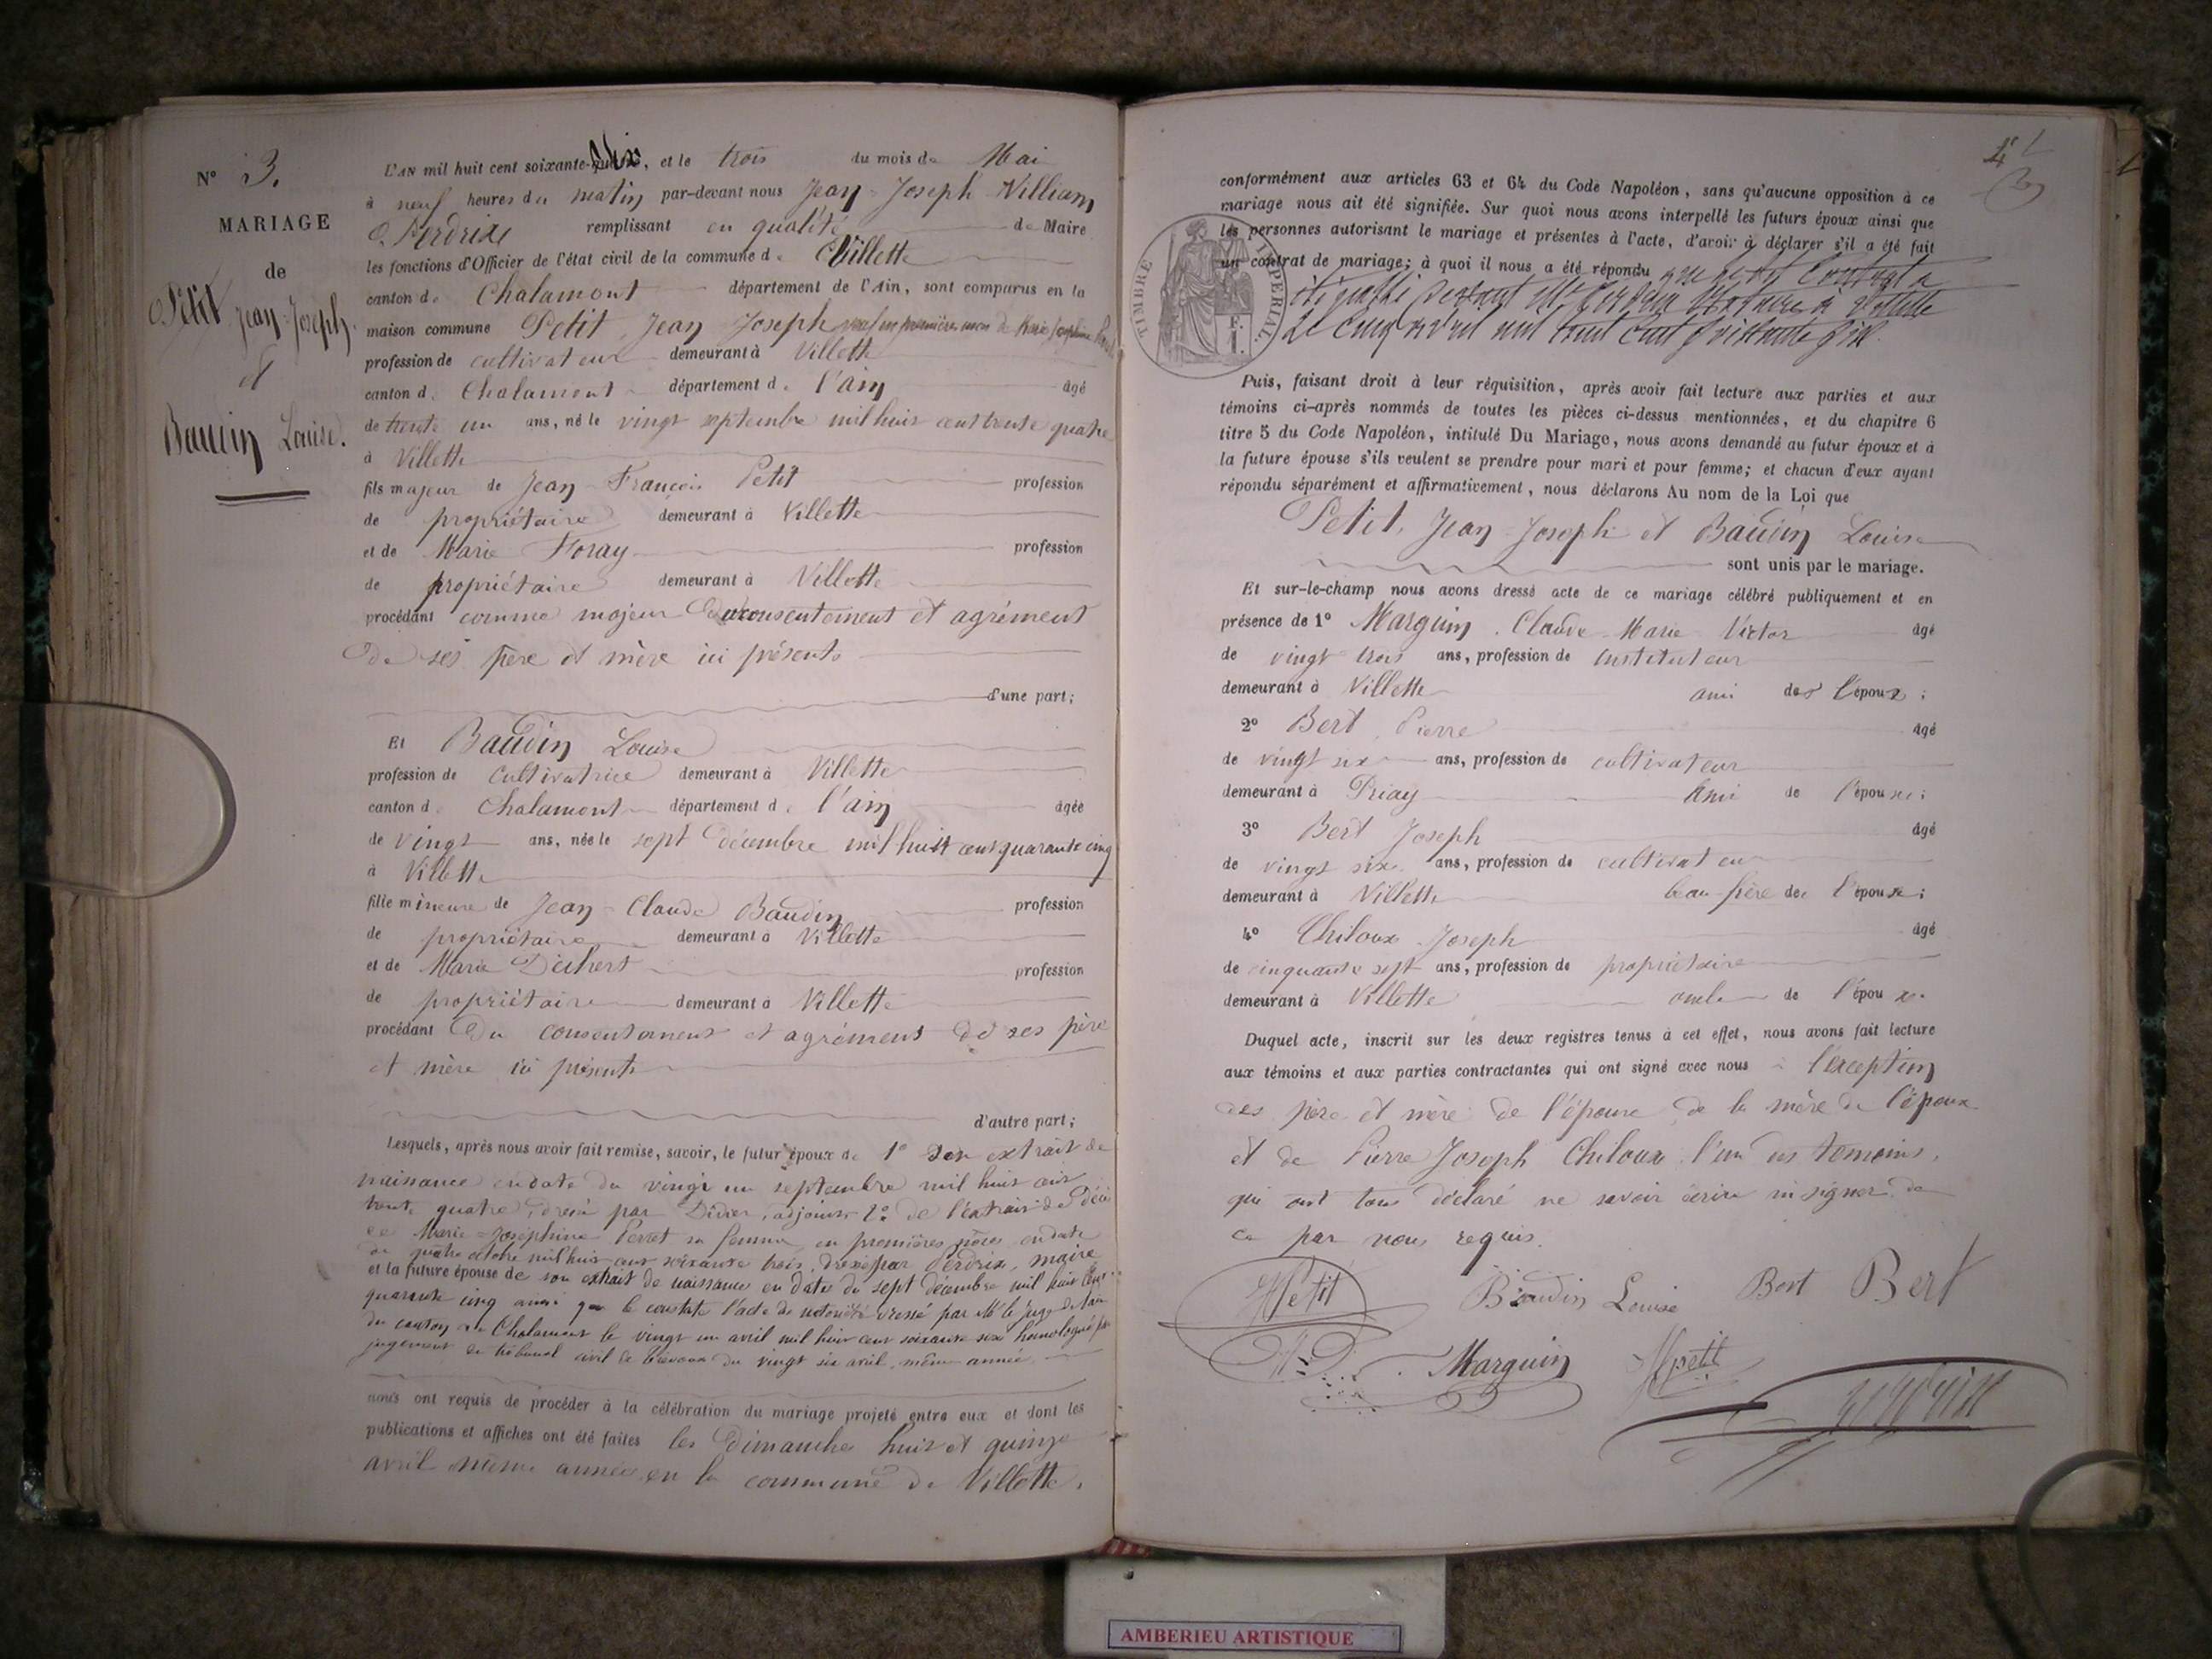 N° 3.
MARIAGE
de
Petit Jean-Joseph.
et
Baudin Louise.
L'AN mil huit cent soixante-six, et le trois du mois de Mai
à neuf heures du matin par-devant nous Jean-Joseph Villiam
Perdrix remplissant en qualité de Maire
les fonctions d'Officier de l'état civil de la commune de Villette
canton de Chalamont département de l'Ain, sont comparus en la
maison commune Petit, Jean Joseph veuf en premières noces de Marie Josephine Perret
profession de cultivateur demeurant à Villette
canton de Chalamont département de l'ain âgé
de trente un ans, né le vingt septembre mil huit cent trente quatre
à Villette
fils majeur de Jean-François Petit profession
de propriétaire demeurant à Villette
et de Marie Foray profession
de propriétaire demeurant à Villette
procédant comme majeur du consentement et agrément
de ses père et mère ici présents
d'une part;
Et Baudin Louise
profession de cultivatrice demeurant à Villette
canton de Chalamont département de l'ain âgée
de vingt ans, née le sept décembre mil huit cent quarante cinq
à Villette
fille mineure de Jean-Claude Baudin profession
de propriétaire demeurant à Villette
et de Marie profession
de propriétaire demeurant à Villette
procédant du consentement et agrément de ses père
et mère ici présents
d'autre part;
Lesquels, après nous avoir fait remise, savoir, le futur époux de 1° son extrait de
naissance en date du vingt un septembre mil huit cent
trente quatre, dressé par Didier, adjoint 2° de l'extrait de décès
de Marie-Joséphine Perret sa femme en premières noces en date
du quatre octobre mil huit cent soixante trois, dressé par Perdrix, maire
et la future épouse de son extrait de naissance en date du sept décembre mil huit cent
quarante cinq ainsi que le constate l'acte de notoriété dressé par Mr le juge de paix
du canton de Chalamont le vingt un avril mil huit cent soixante six homologué par
jugement du tribunal civil de Trévoux du vingt six avril, même année
nous ont requis de procéder à la célébration du mariage projeté entre eux et dont les
publications et affiches ont été faites les dimanches huit et quinze
avril même année en la commune de Villette.
4
TIMBRE IMPERIAL
conformément aux articles 63 et 64 du Code Napoléon, sans qu'aucune opposition à ce
mariage nous ait été signifiée. Sur quoi nous avons interpellé les futurs époux ainsi que
les personnes autorisant le mariage et présentes à l'acte, d'avoir à déclarer s'il a été fait
un contrat de mariage; à quoi il nous a été répondu que contrat a
été passé devant Me Notaire à Villette
Le cinq avril mil huit cent soixante six.
Puis, faisant droit à leur réquisition, après avoir fait lecture aux parties et aux
témoins ci-après nommés de toutes les pièces ci-dessus mentionnées, et du chapitre 6
titre 5 du Code Napoléon, intitulé Du Mariage, nous avons demandé au futur époux et à
la future épouse s'ils veulent se prendre pour mari et pour femme; et chacun d'eux ayant
répondu séparément et affirmativement, nous déclarons Au nom de la Loi que
Petit, Jean-Joseph et Baudin Louise
sont unis par le mariage.
Et sur-le-champ nous avons dressé acte de ce mariage célébré publiquement et en
présence de 1° Marguin, Claude-Marie-Victor âgé
de vingt trois ans, profession de instituteur
demeurant à Villette ami des l'époux;
2° Bert, Pierre âgé
de vingt six ans, profession de cultivateur
demeurant à Priay Ami de l'épouse;
3° Bert Joseph âgé
de vingt six ans, profession de cultivateur
demeurant à Villette beau-frère de l'épouse;
4° Chiloux Joseph âgé
de cinquante sept ans, profession de propriétaire
demeurant à Villette oncle de l'époux.
Duquel acte, inscrit sur les deux registres tenus à cet effet, nous avons fait lecture
aux témoins et aux parties contractantes qui ont signé avec nous à l'exception
des père et mère de l'épouse, de la mère de l'époux
et de Pierre Joseph Chiloux l'un des temoins,
qui ont tous déclaré ne savoir écrire ni signer de
ce par nous requis.
Petit Baudin Louise Bert Bert
Marguin petit
AMBERIEU ARTISTIQUE